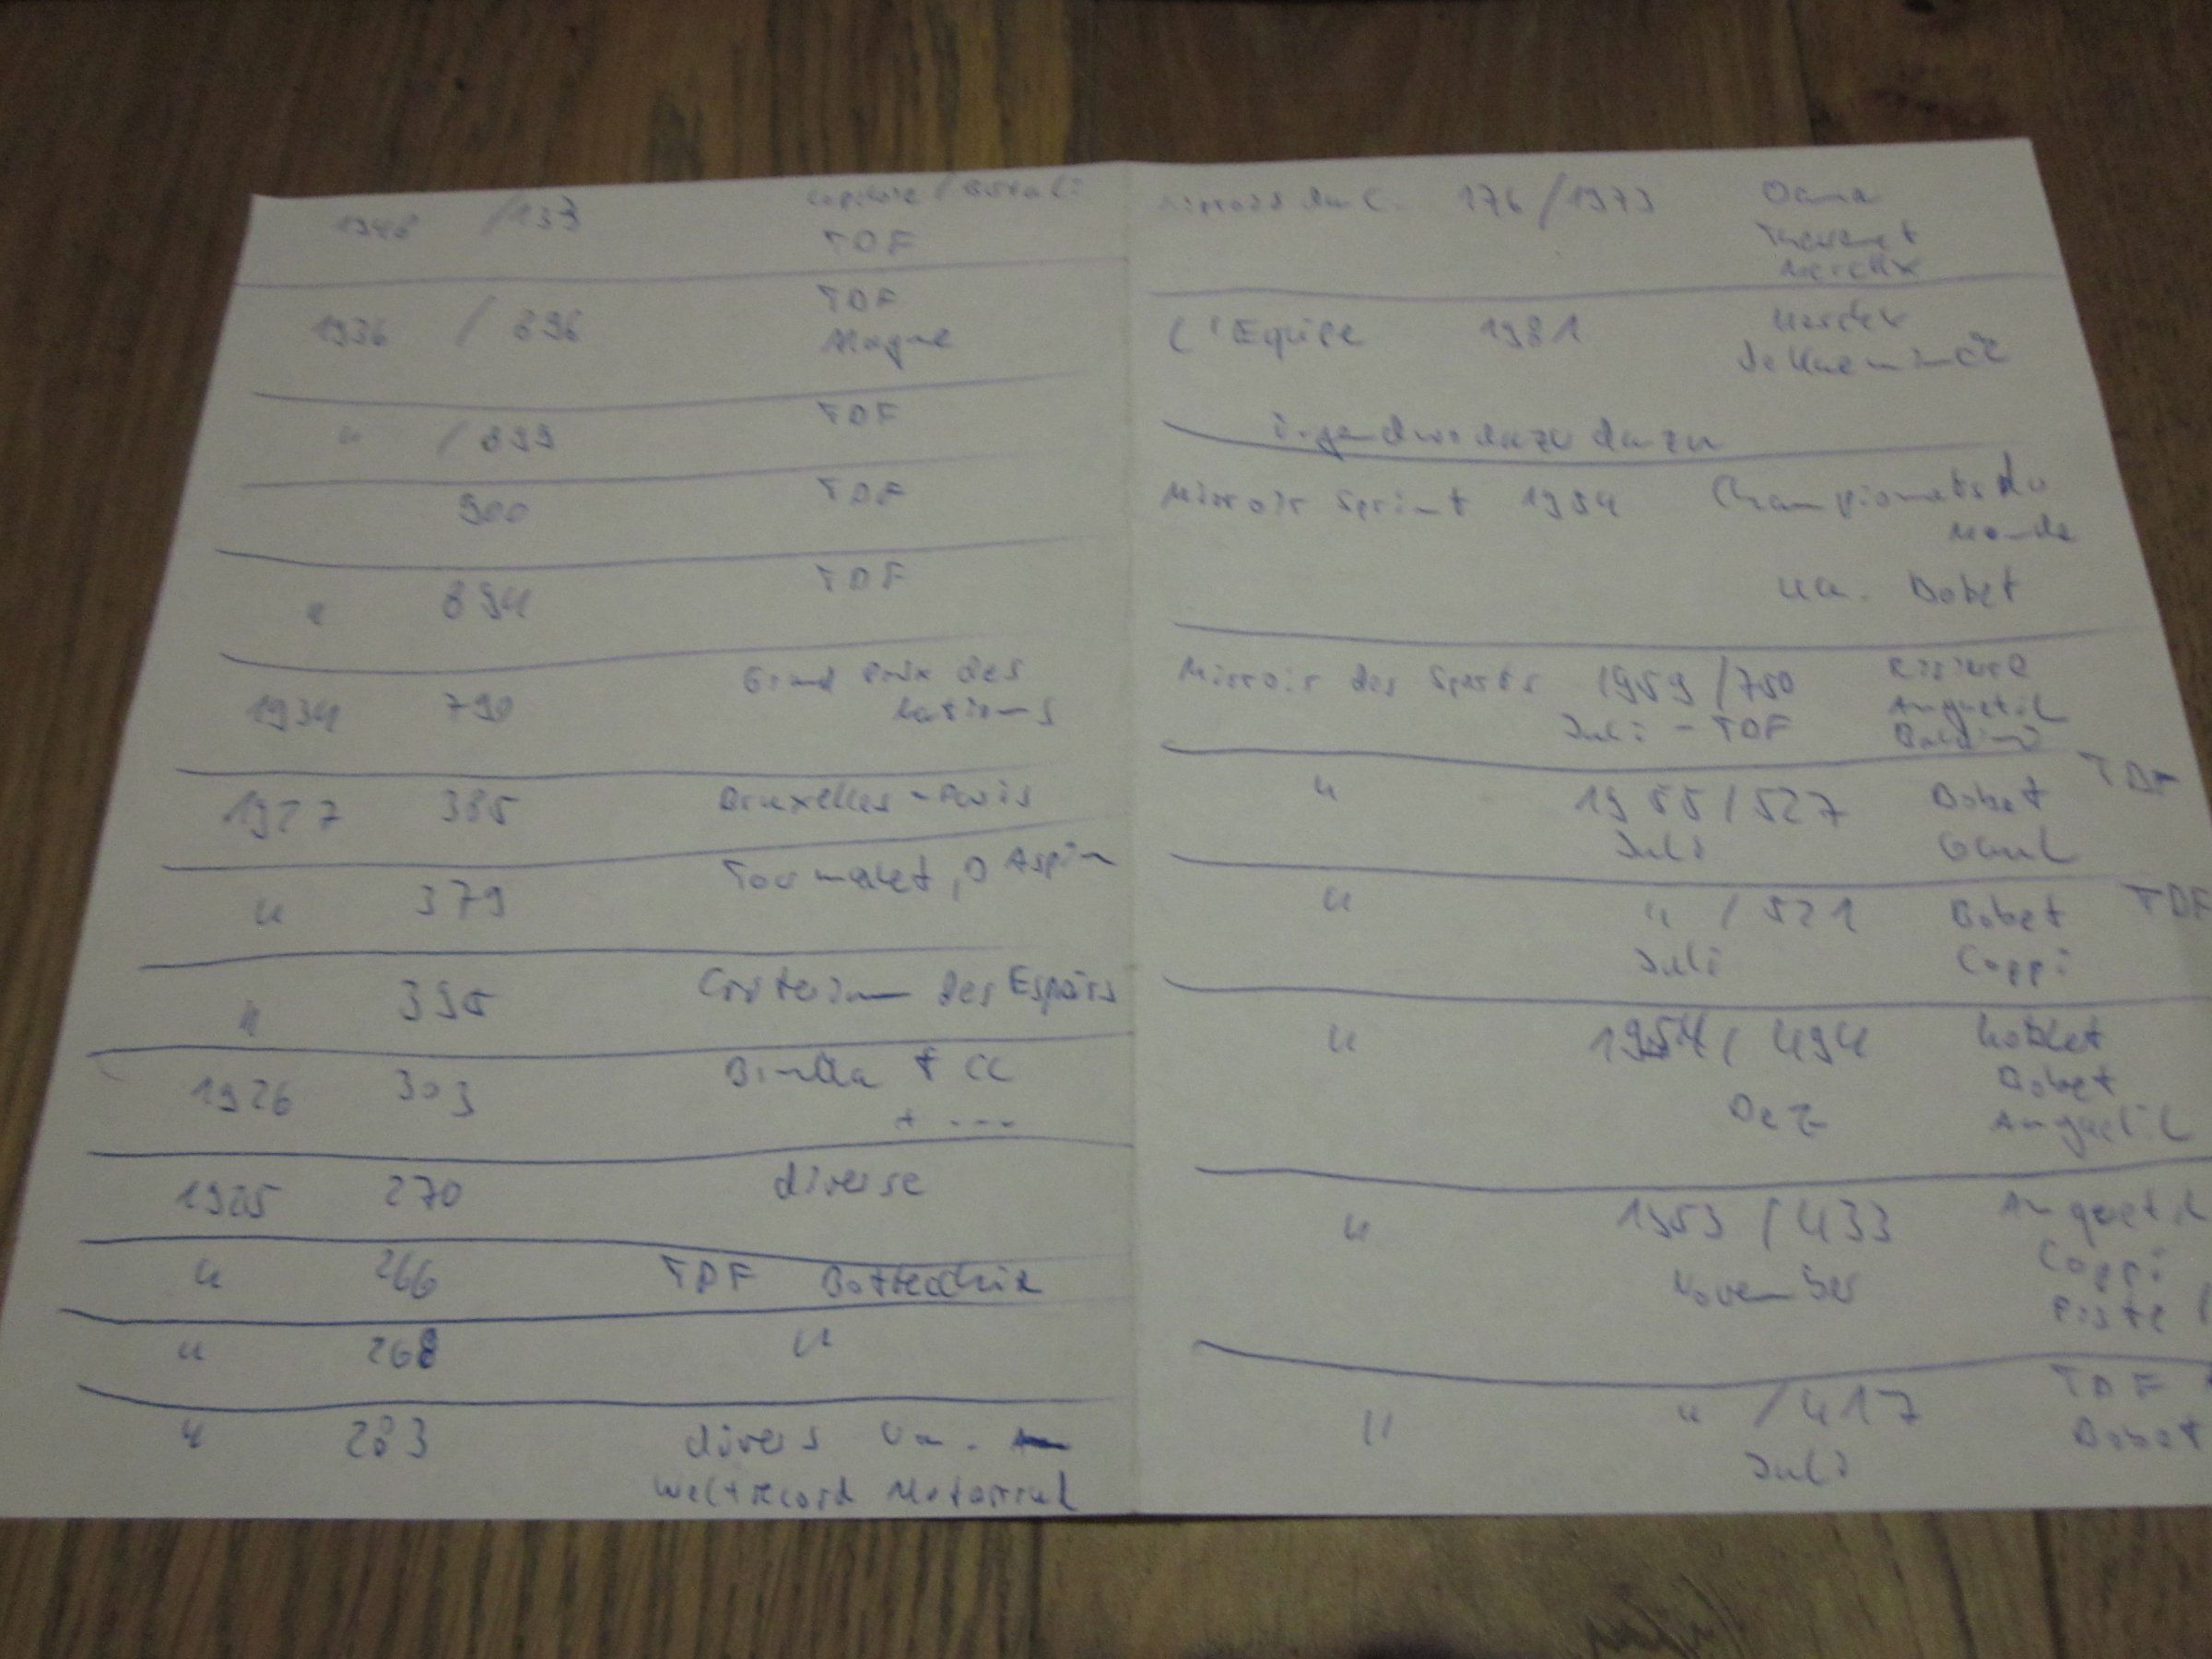 1948 /133
TDF
1936 / 896 TDF
Magne
" / 899 TDF
900 TDF
" 894 TDF
1934 790 Grand Prix des
Nations
1927 385 Bruxelles - Paris
" 379 Tourmalet, D Aspin
" 395 Criterium des Espoirs
1926 303 Binda + CC
+ ---
1925 270 diverse
" 266 TDF Bottecchia
" 268 "
" 283 divers u.a.
Weltrecord Motorrad
Miroir du C. 176/1973 Ocana
Thevenet
Merckx
L'Equipe 1981 Merckx
irgendwo dazu dazu
Mirroir Sprint 1954 Championats du
Monde
u.a. Bobet
Mirroir des Sports 1959/750 Riviere
Juli - TDF Anquetil
Baldini
" 1955/527 Bobet TDF
Juli Gaul
" " / 521 Bobet TDF
Juli Coppi
" 1954/ 494 Koblet
Bobet
Dez Anquetil
" 1953 / 433 Anquetil
November Coppi
Piste
" " /417 TDF
Juli Bobet